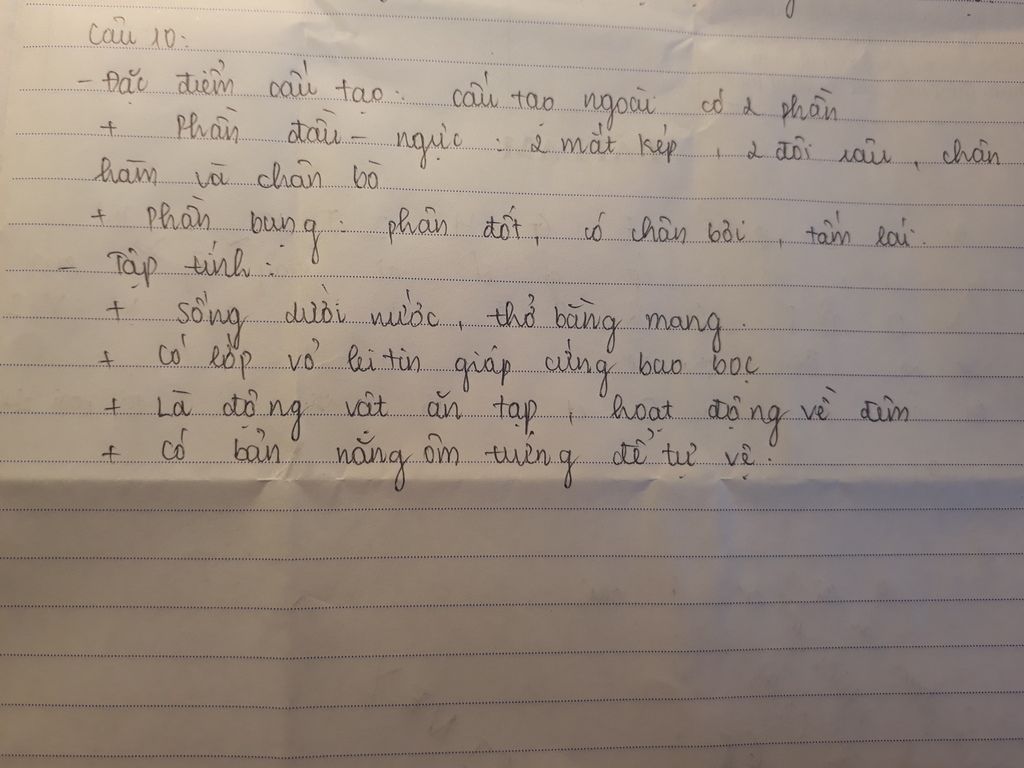 Câu 10:
- Đặc điểm cấu tạo: cấu tạo ngoài có 2 phần
+ Phần đầu - ngực : 2 mắt kép, 2 đôi râu, chân
hàm và chân bò
+ Phần bụng : phân đốt, có chân bơi, tấm lái.
- Tập tính :
+ Sống dưới nước, thở bằng mang.
+ Có lớp vỏ kitin giáp cứng bao bọc
+ Là động vật ăn tạp, hoạt động về đêm
+ Có bản năng ôm trứng để tự vệ.